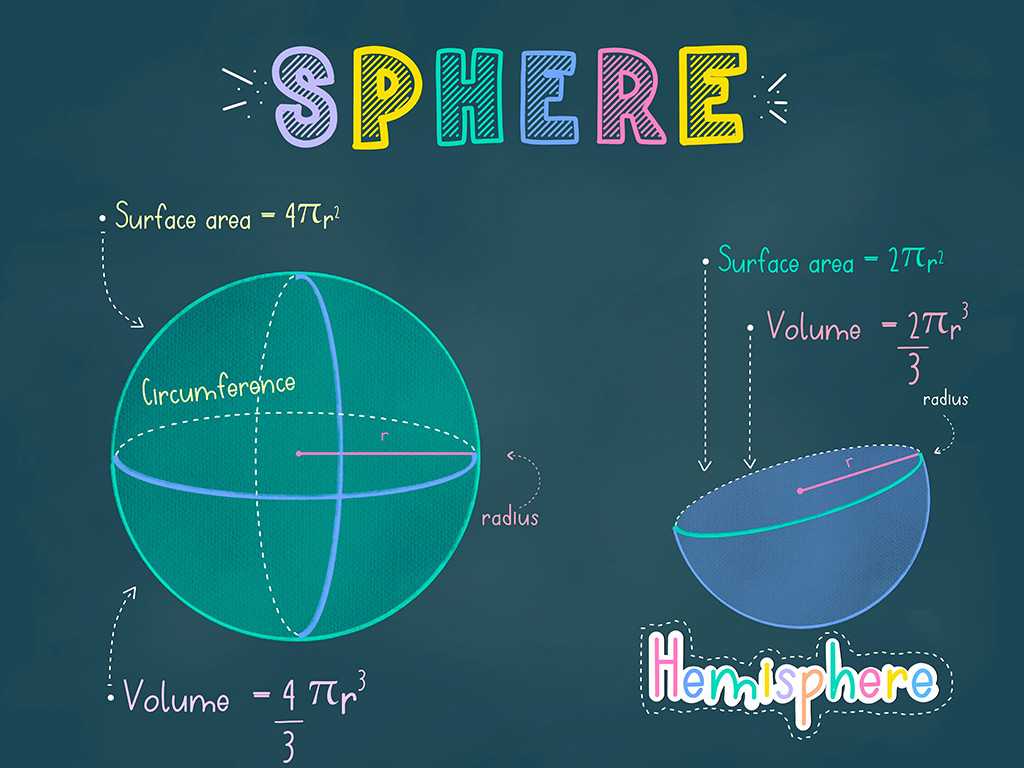 SPHERE
Surface area = 4πr²
Circumference
r
radius
Volume = 4/3 πr³
Surface area = 2πr²
Volume = 2/3 πr³
radius
r
Hemisphere